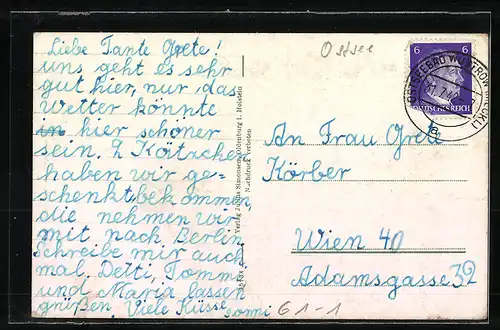 Liebe Tante Grete!
uns geht es sehr
gut hier, nur das
Wetter könnte
hier schöner
sein. 2 Kätzchen
haben wir ge=
schenktbekommen,
die nehmen wir
mit nach Berlin.
Schreibe mir auch
mal. Detti, Tommi
und Maria lassen
grüßen. Viele Küsse
Verlag Julius Simonsen, Oldenburg i. Holstein
Nachdruck verboten
Ostsee
6 6
DEUTSCHES REICH
OSTSEEBAD
An Frau Grete
Körber
Wien 40
Adamsgasse 32
61-1